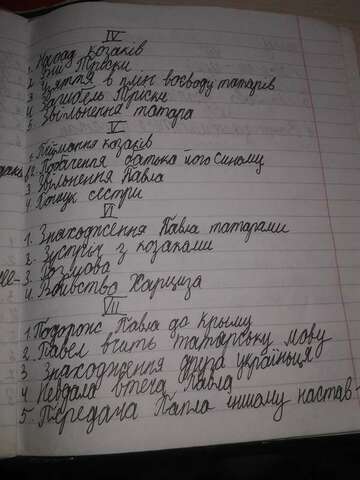 IV
1. Напад козаків
2. Бій Триски
3 Узяття в плін воєводу татарів
4 Загибель Триски
5. Звільнення татара
V
1. Піймання козаків
2. Пробачення батька його синому
3 Звільнення Павла
4 Пошук сестри
VI
1. Знаходження Павла татарами
2. Зустріч з козаками
3. Розмова
4. Вбивство Харциза
VII
1. Подорож Павла до Криму
2. Павел вчить татарську мову
3 Знаходження друга українця
4 Невдала втеча Павла
5. Передача Павла іншому настав-